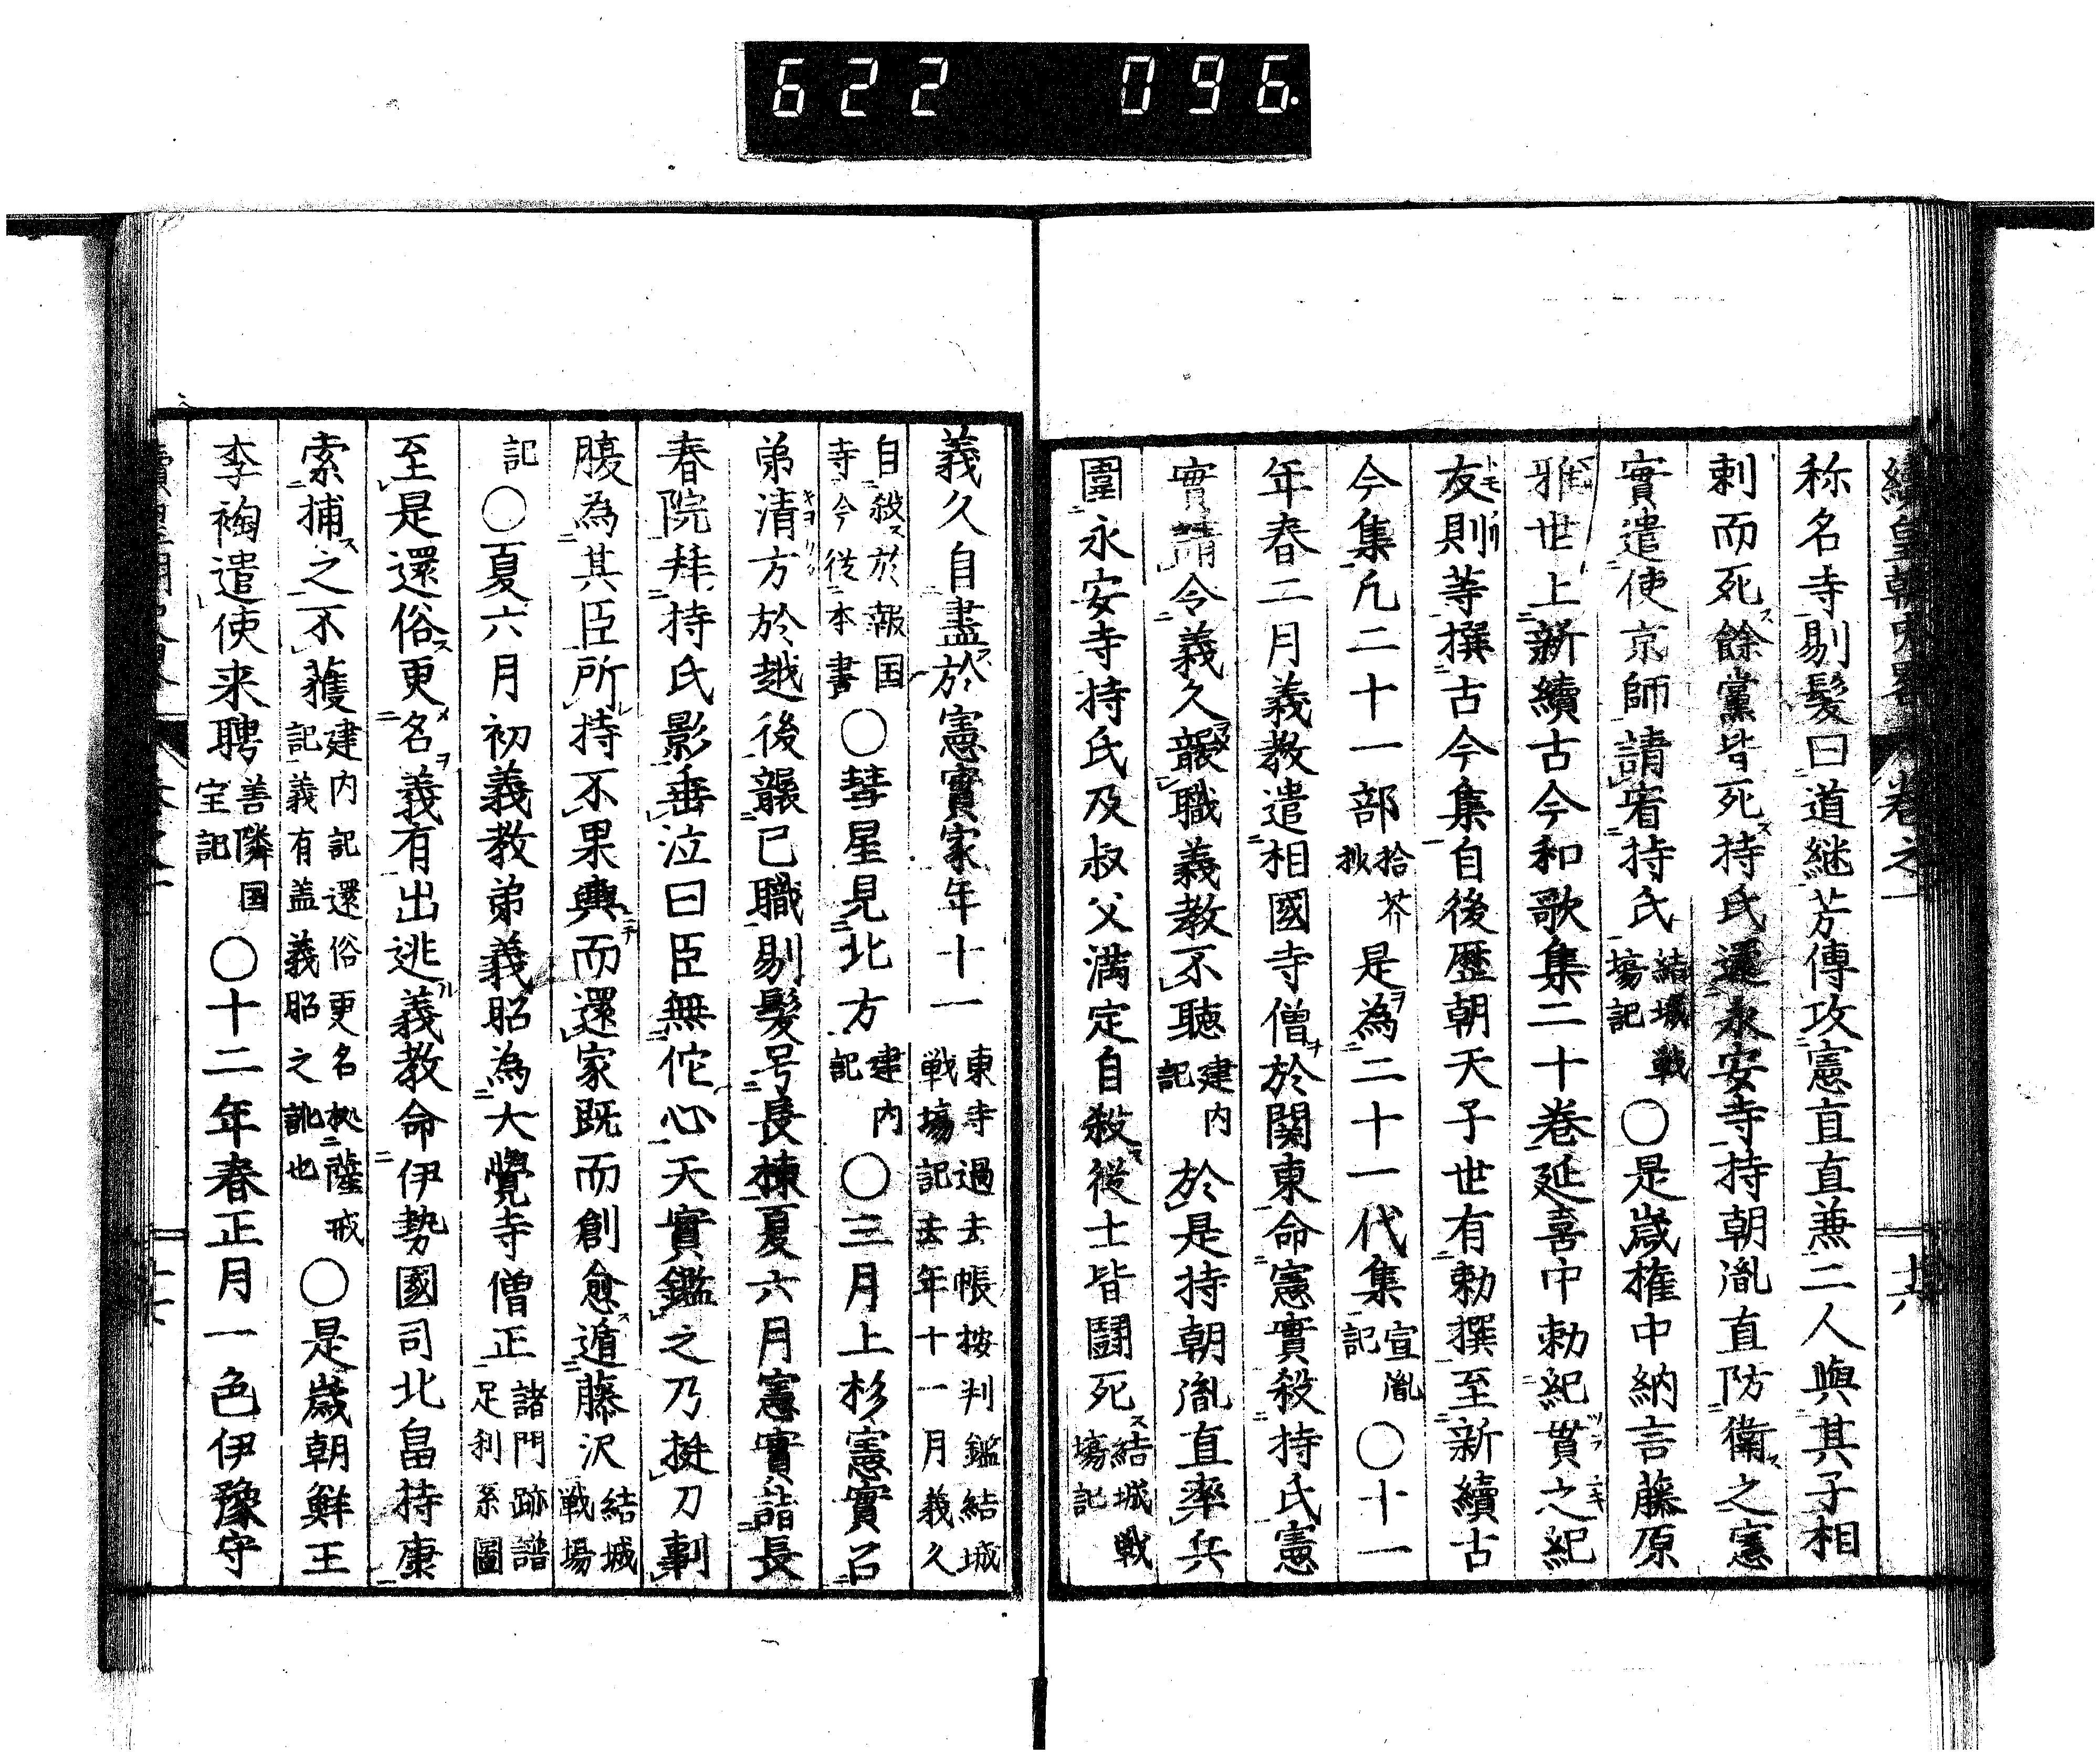 622 096.
續皇朝史畧卷之一
十六
称名寺剔髪曰道継芳傳攻憲直直兼二人與其子相
刺而死餘黨皆死持氏還永安寺持朝胤直防衛之憲
實遣使京師請宥持氏結城戦場記○是歳権中納言藤原
雅世上新續古今和歌集二十卷延喜中勅紀貫之紀
友則等撰古今集自後歴朝天子世有勅撰至新續古
今集凡二十一部拾芥抄是為二十一代集宣胤記○十一
年春二月義教遣相國寺僧於関東命憲實殺持氏憲
實請令義久襲職義教不聴建内記於是持朝胤直率兵
圍永安寺持氏及叔父満定自殺從士皆闘死結城戦場記
義久自盡於憲實家年十一東寺過去帳桉判鑑結城戦場記去年十一月義久
自殺於報国寺今從本書○彗星見北方建内記○三月上杉憲實召
弟清方於越後襲已職剔髪号長棟夏六月憲實詣長
春院拜持氏影垂泣曰臣無佗心天實鑑之乃挺刀剚
腹為其臣所持不果輿而還家既而創愈遁藤沢結城戦場
記○夏六月初義教弟義昭為大覺寺僧正諸門跡譜足利系圖
至是還俗更名義有出逃義教命伊勢國司北畠持康
索捕之不獲建内記還俗更名拠二薩戒記義有盖義昭之訛也○是歳朝鮮王
李裪遣使来聘善隣国宝記○十二年春正月一色伊豫守